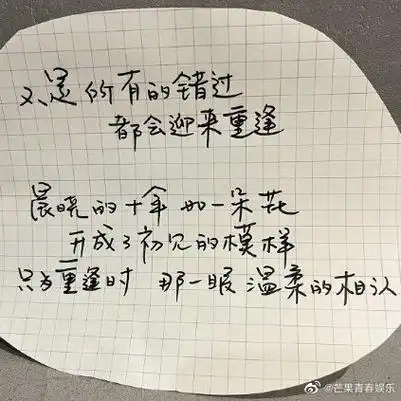 不是所有的错过
都会迎来重逢
晨晓的十年如一朵花
开成了初见的模样
只为重逢时 那一眼温柔的相认
@芒果青春娱乐